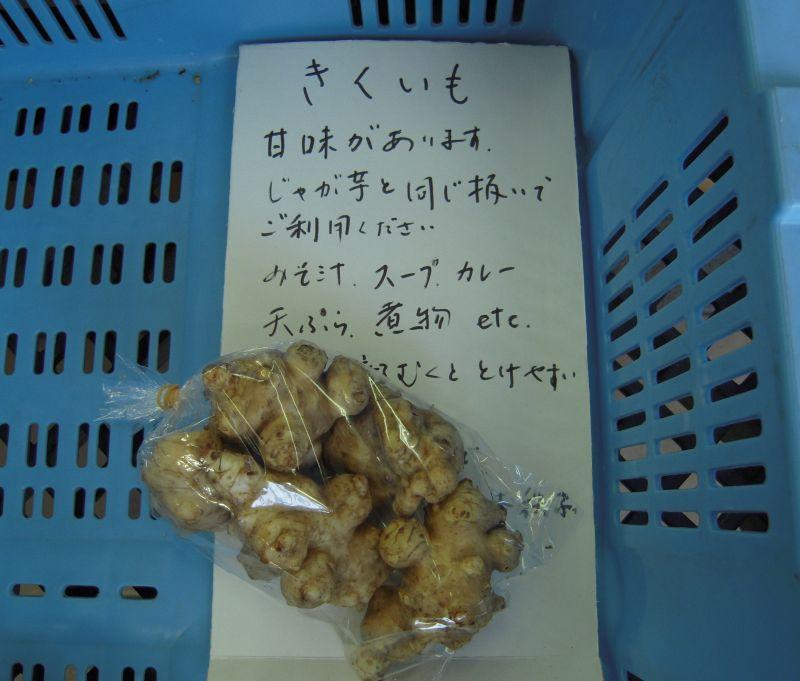 きくいも
甘味があります.
じゃが芋と同じ扱いで
ご利用ください
みそ汁. スープ. カレー
天ぷら. 煮物 etc.
むくととけやすい